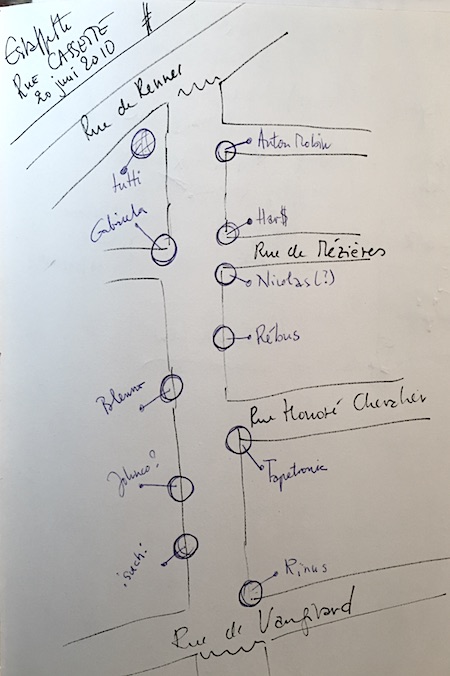 Estaffette #
Rue CASSETTE
20 juin 2010
Rue de Rennes
Anton Mobin
tutti
Gabriela
Har$
Rue de Mézières
Nicolas(?)
Rébus
Blenno
Rue Honoré Chevalier
Tapetronic
Johnco?
.such:
Rinus
Rue de Vaugirard